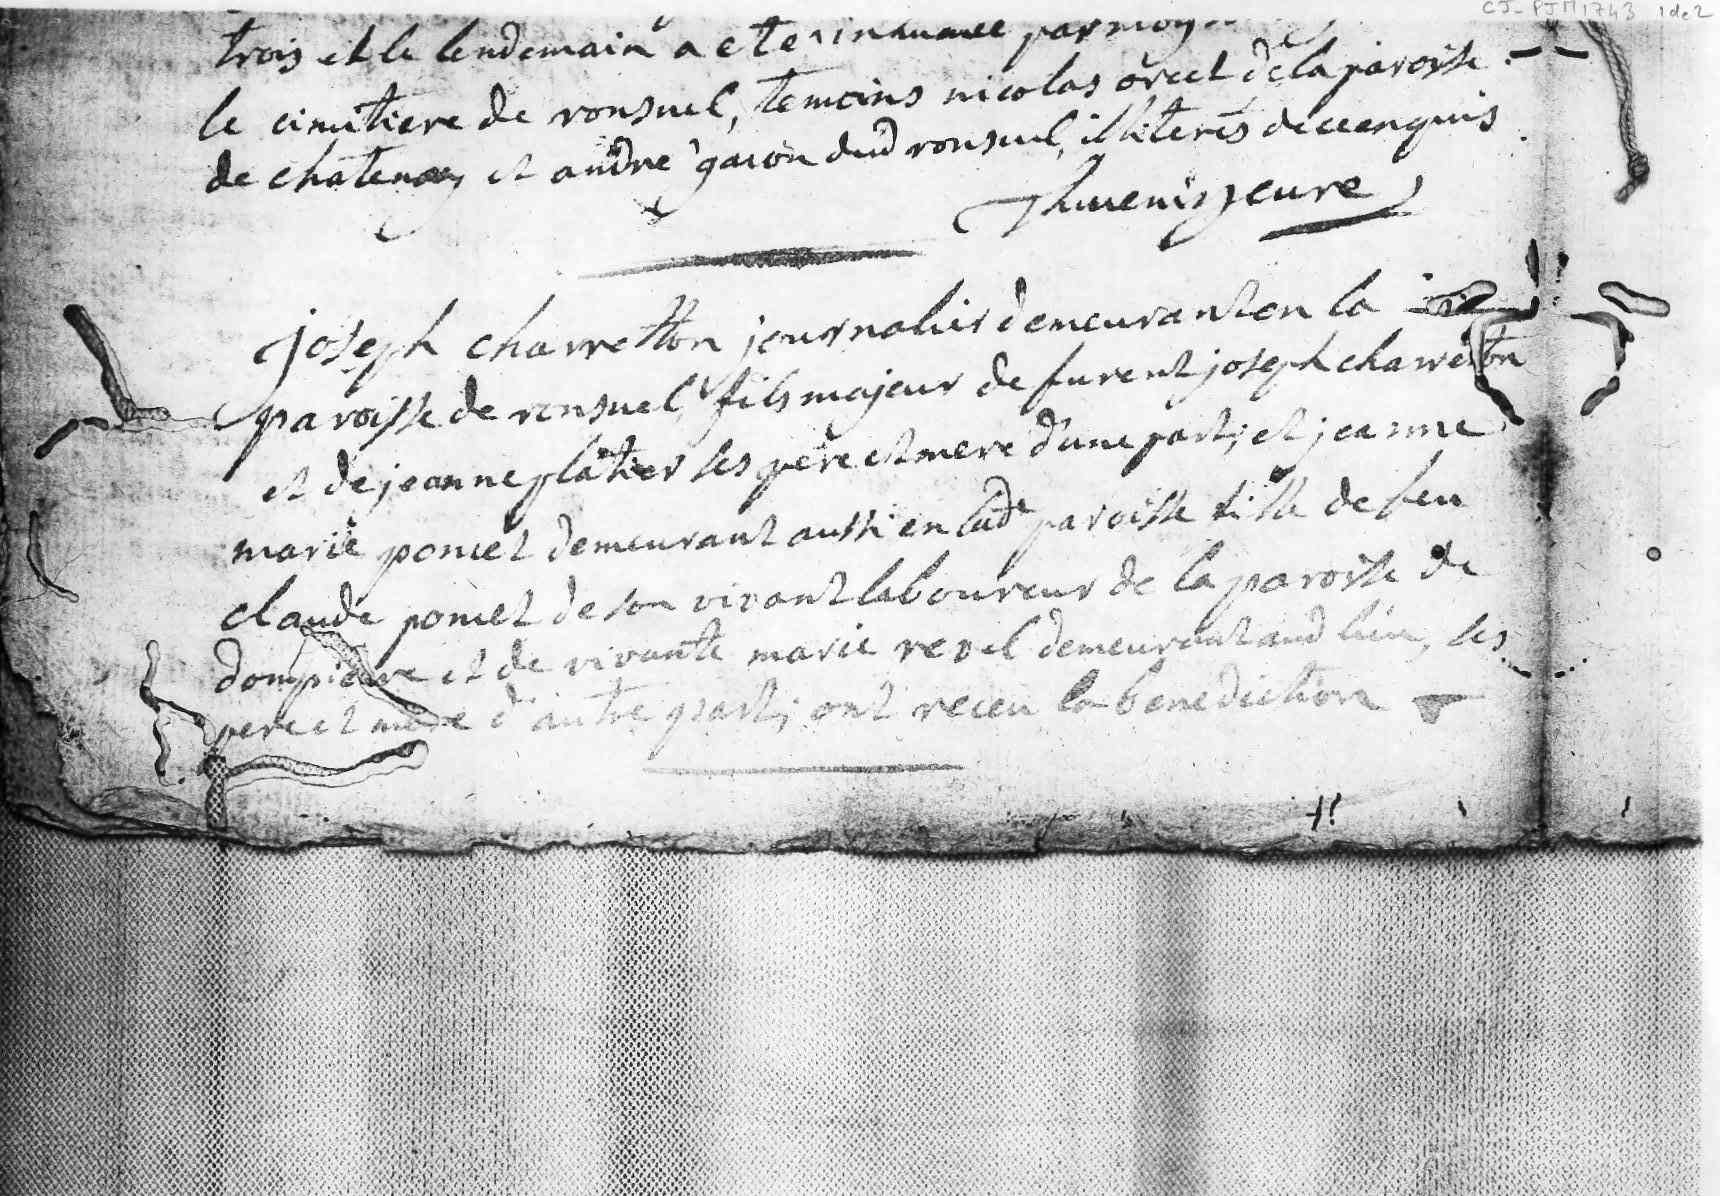 CJ-PJM1743 1 de 2
trois et le lendemain a ete inhumee par moy
le cimitiere de ronsuel, temoins nicolas orcet de la paroisse
de chatenay et andre gacon dud ronsuel, illiterés de ce enquis
Thuveniz cure
joseph charretton journalier demeurant en la
paroisse de ronsuel, fils majeur de furent joseph charreton
et de jeanne platier ses pere et mere d'une part; et jeanne
marie poncet demeurant aussi en lade paroisse fille de feu
claude poncet de son vivant laboureur de la paroisse de
dompierre et de vivante marie revel demeurant aud lieu, ses
pere et mere d'autre part; ont receu la benediction